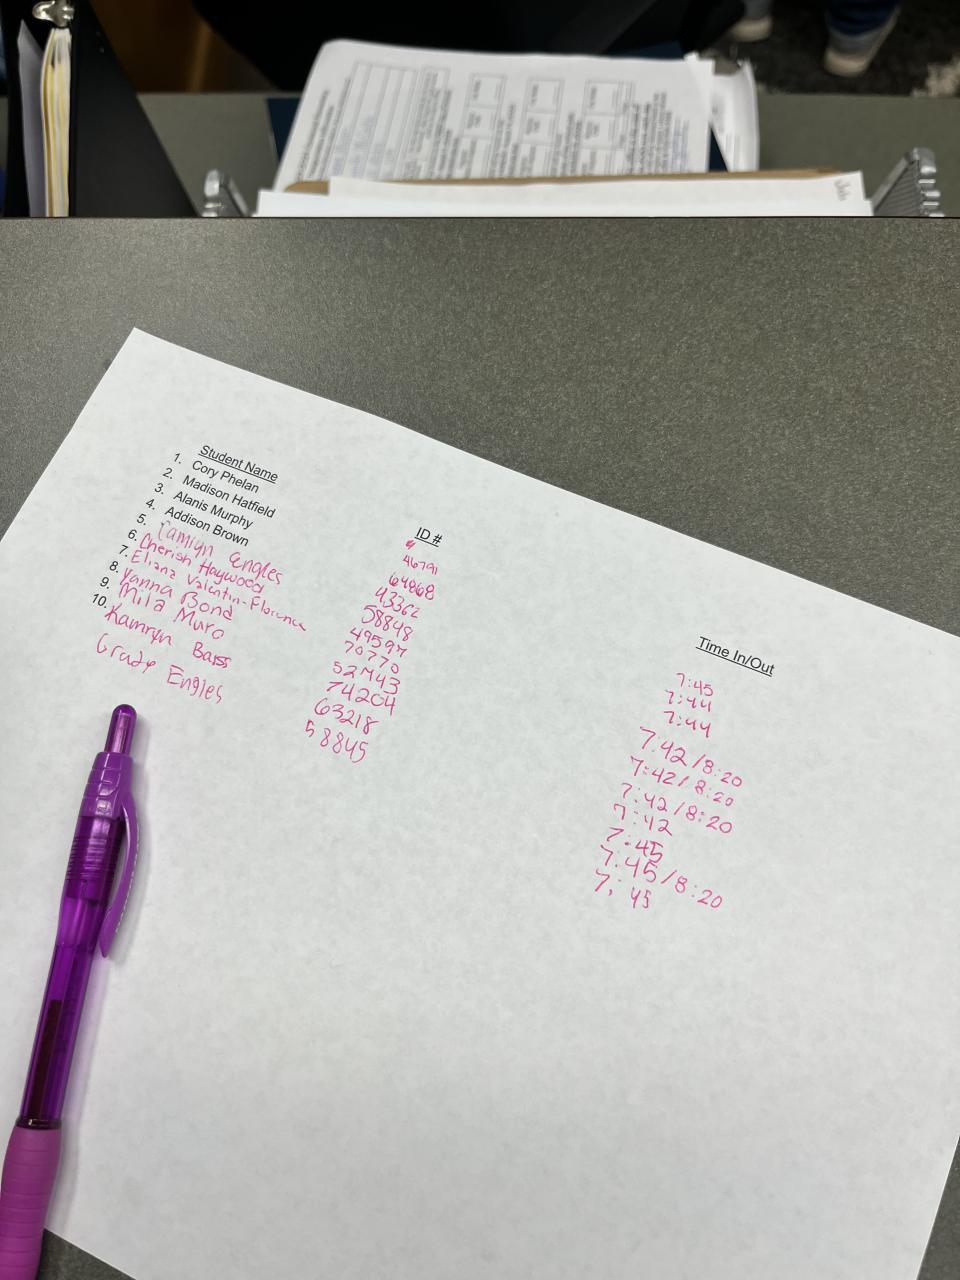 Student Name
1. Cory Phelan
2. Madison Hatfield
3. Alanis Murphy
4. Addison Brown
5. Camiyn Engles
6. Cherish Haywood
7. Eliana Valentin-Florence
8. Yanna Bond
9. Mila Muro
10. Kamryn Bass
Grady Engles
ID #
46791
64868
43362
58848
49597
70770
52743
74204
63218
58845
Time In/Out
7:45
7:44
7:44
7:42 / 8:20
7:42 / 8:20
7:42 / 8:20
7:42
7:45
7:45 / 8:20
7:45